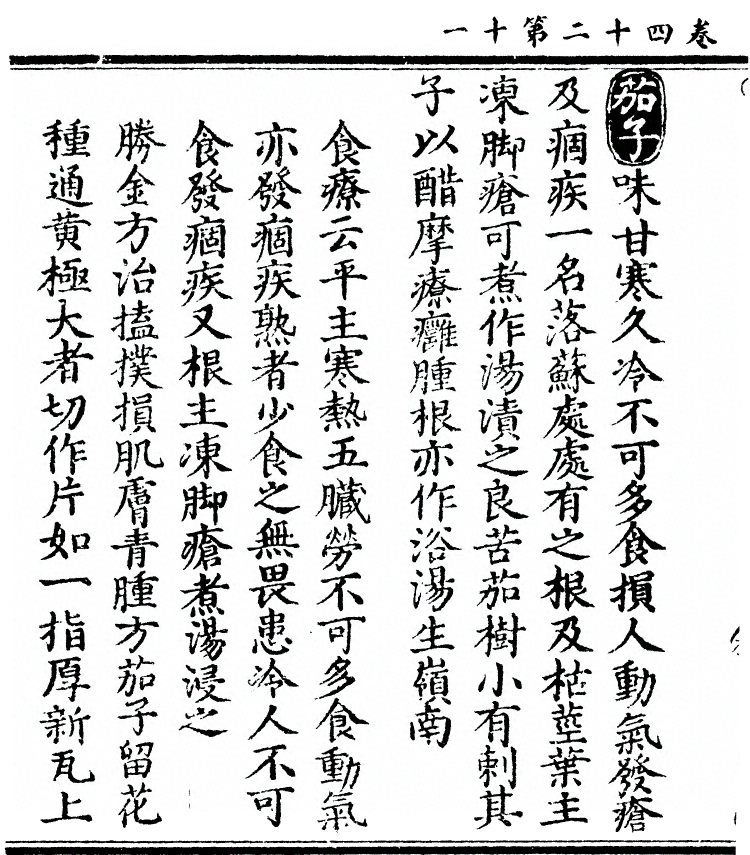 卷四十二第十一
茄子味甘寒久冷不可多食損人動氣發瘡
及痼疾一名落蘇處處有之根及枯莖葉主
凍脚瘡可煮作湯漬之良苦茄樹小有刺其
子以醋摩療癰腫根亦作浴湯生嶺南
食療云平主寒熱五臟勞不可多食動氣
亦發痼疾熟者少食之無畏患冷人不可
食發痼疾又根主凍脚瘡煮湯浸之
勝金方治搕撲損肌膚青腫方茄子留花
種通黃極大者切作片如一指厚新瓦上